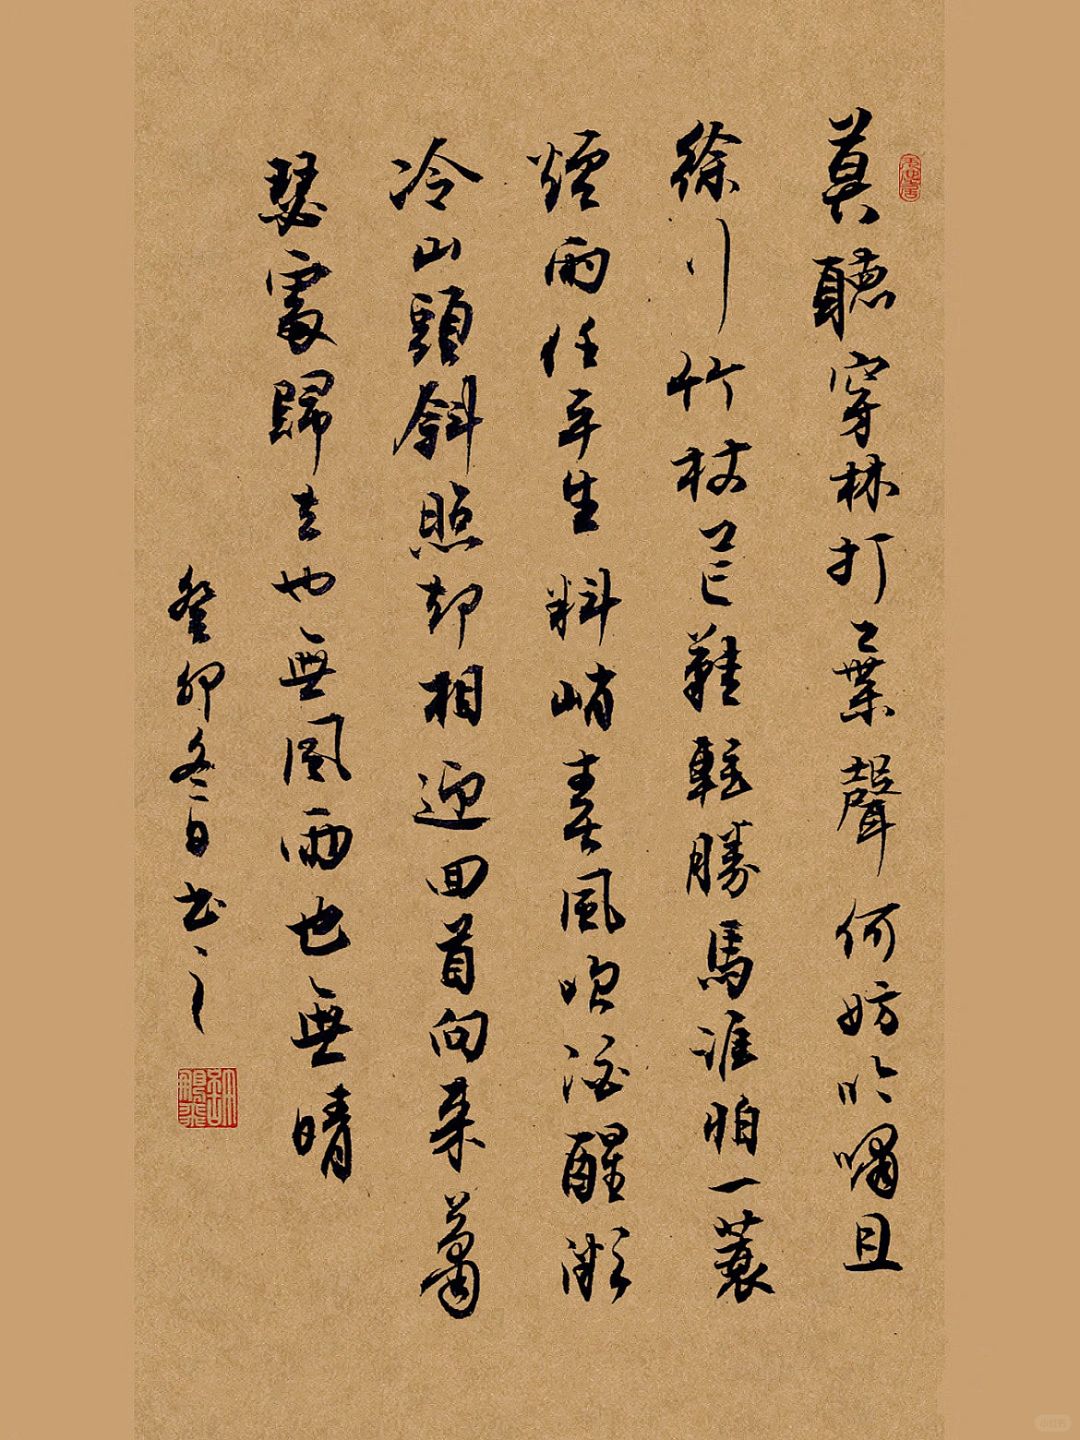 莫聽穿林打葉聲何妨吟嘯且
徐行竹杖芒鞋輕勝馬誰怕一蓑
煙雨任平生料峭春風吹酒醒微
冷山頭斜照却相迎回首向来蕭
瑟處歸去也無風雨也無晴
癸卯冬日书之
小红书